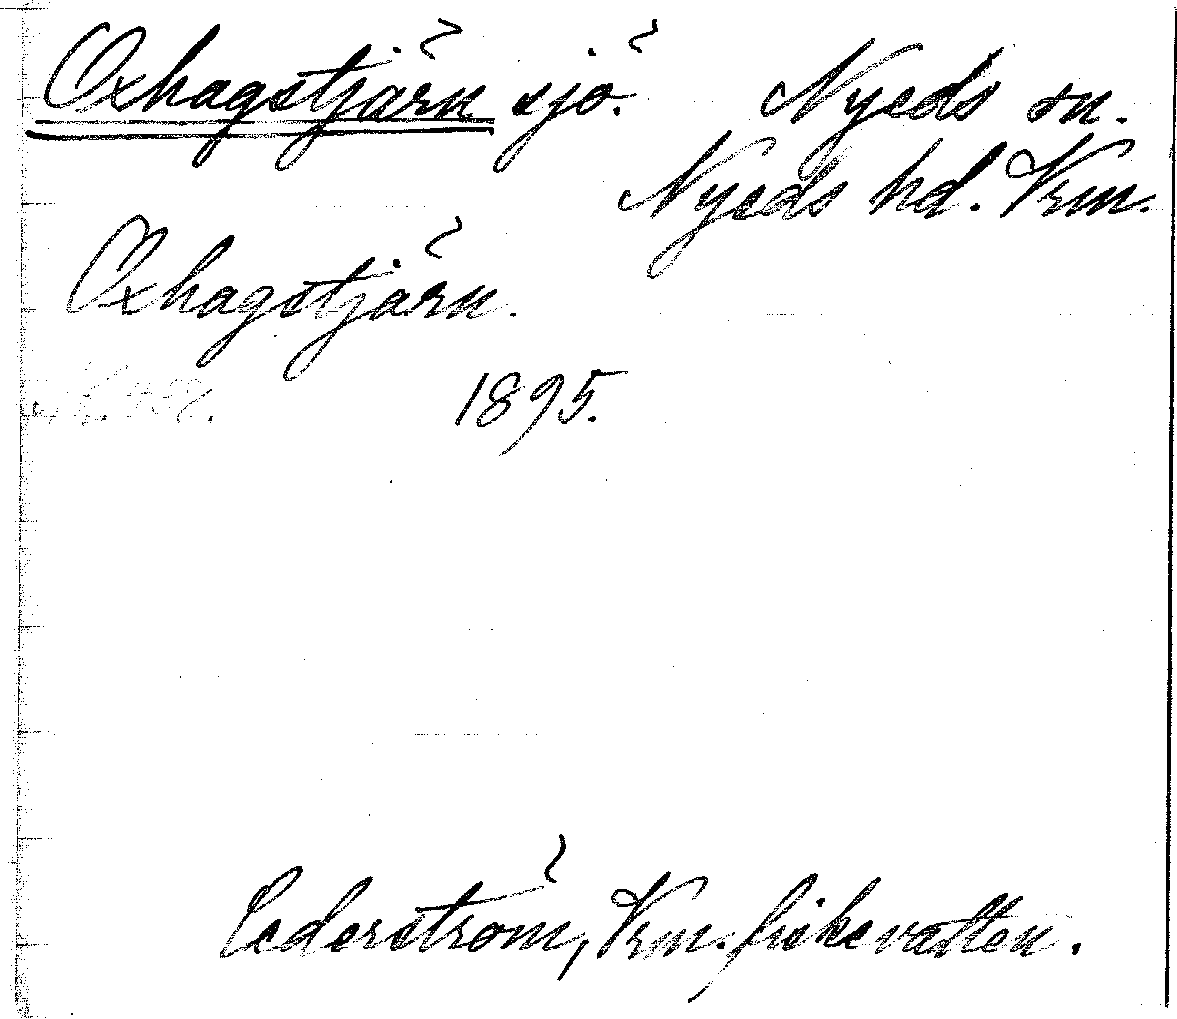 Oxhagstjärn sjö. Nyeds sn.
Nyeds hd. Vrm.
Oxhagstjärn.
1895.
Cederström, Vrm. fiskevatten.